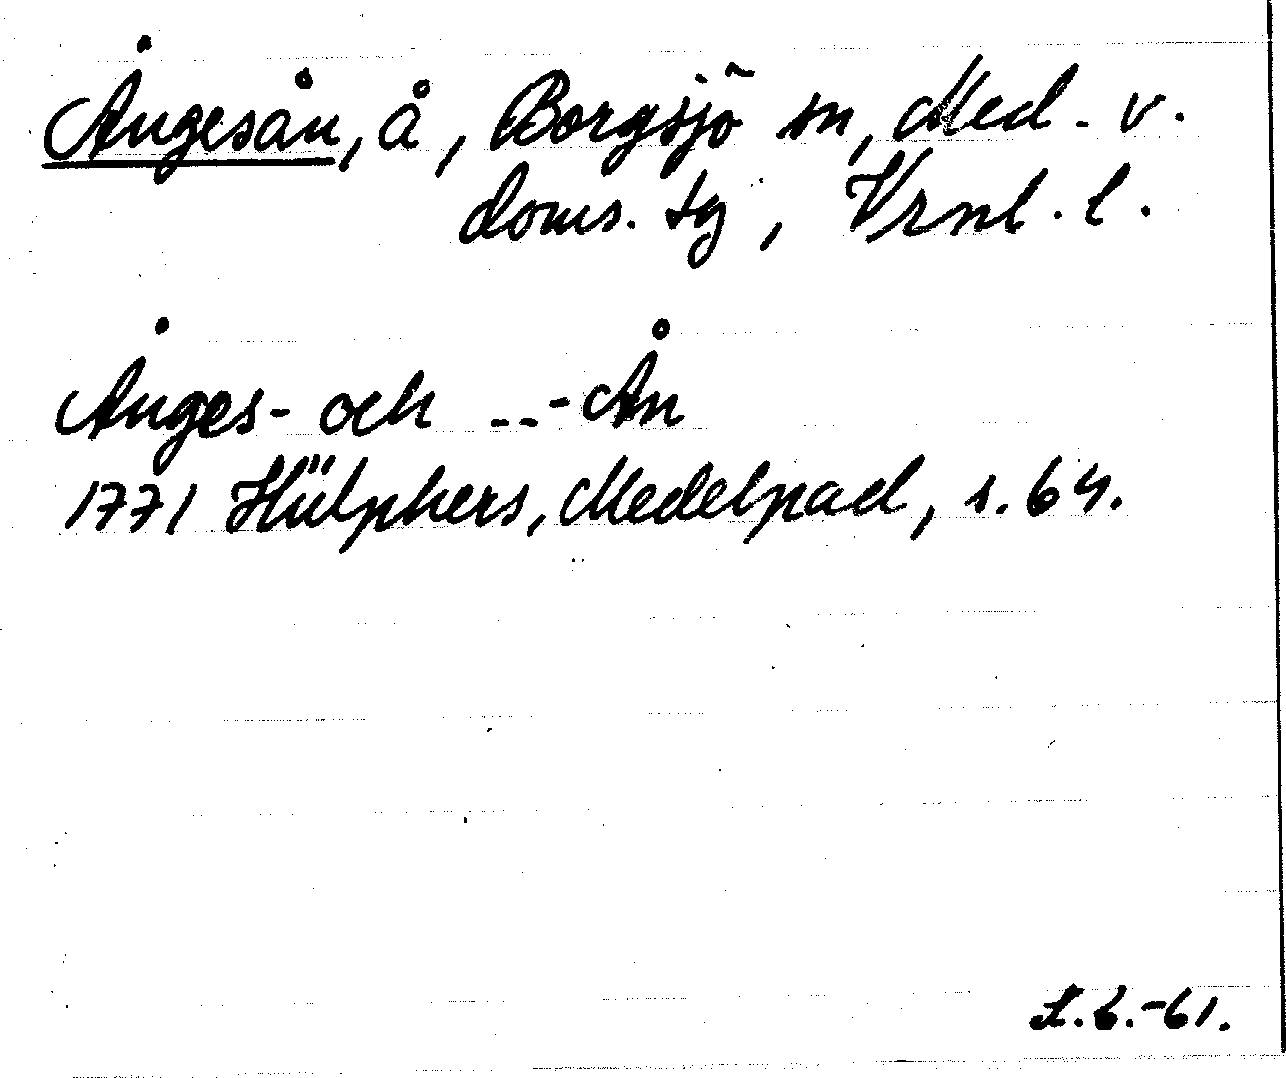 Ångesån, å, Borgsjö sn, Med. v.
doms. tg, Vrnl. l.
Ånges- och ---Ån
1771 Hülphers, Medelpad, s. 64.